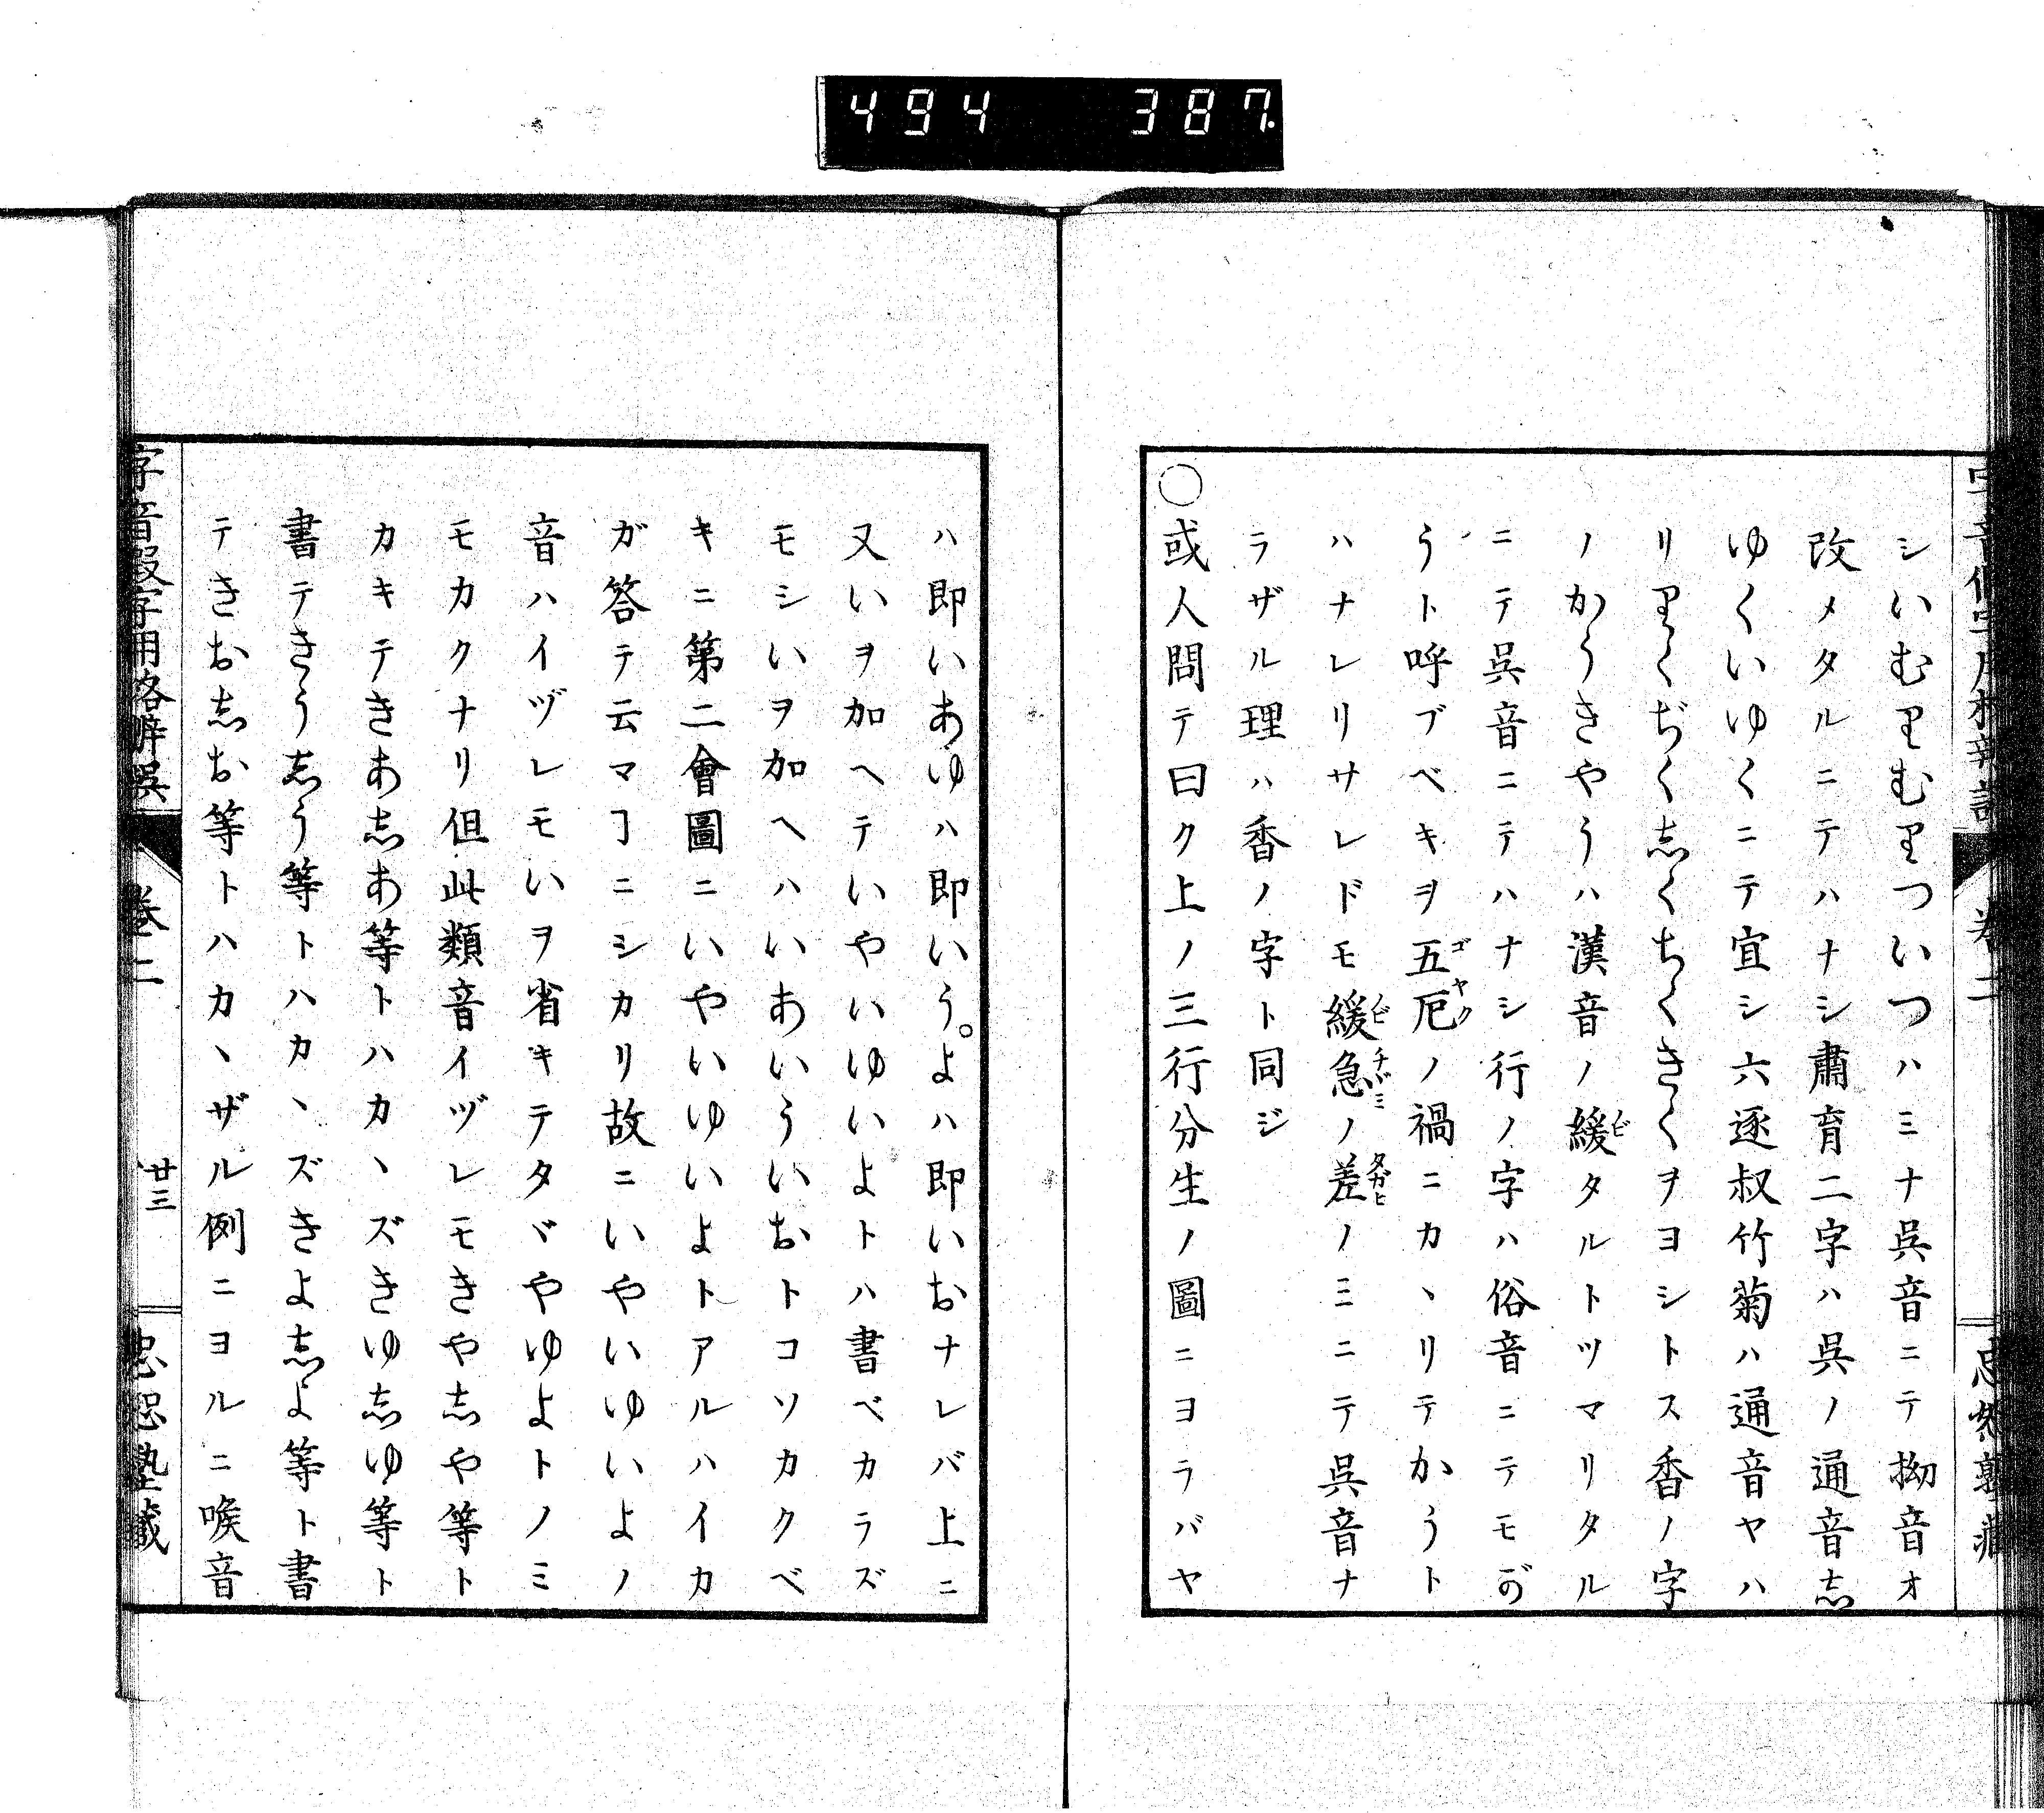 494 387.
シいむりむりついつハミナ呉音ニテ拗音オ
改メタルニテハナシ肅育二字ハ呉ノ通音志
ゆくいゆくニテ宜シ六逐叔竹菊ハ通音ヤハ
リりくぢく志くちくきくヲヨシトス香ノ字
ノかうきやうハ漢音ノ緩タルトツマリタル
ニテ呉音ニテハナシ行ノ字ハ俗音ニテモが
うト呼ブベキヲ五厄ノ禍ニカヽリテかうト
ハナレリサレドモ緩急ノ差ノミニテ呉音ナ
ラザル理ハ香ノ字ト同ジ
○或人問テ曰ク上ノ三行分生ノ圖ニヨラバヤ
卷二
ハ即いあゆハ即いう。よハ即いおナレバ上ニ
又いヲ加ヘテいやいゆいよトハ書ベカラズ
モシいヲ加ヘハ即いあいういおトコソカクベ
キニ第二會圖ニいやいゆいよトアルハイカ
ガ答テ云マヿニシカリ故ニいやいゆいよノ
音ハイヅレモいヲ省キテタヾやゆよトノミ
モカクナリ但此類音イヅレモきや志や等ト
カキテきあ志あ等トハカヽズきゆ志ゆ等ト
書テきう志う等トハカヽズきよ志よ等ト書
テきお志お等トハカヽザル例ニヨルニ喉音
字音假字用格辨誤 卷二 廿三 忠恕塾藏